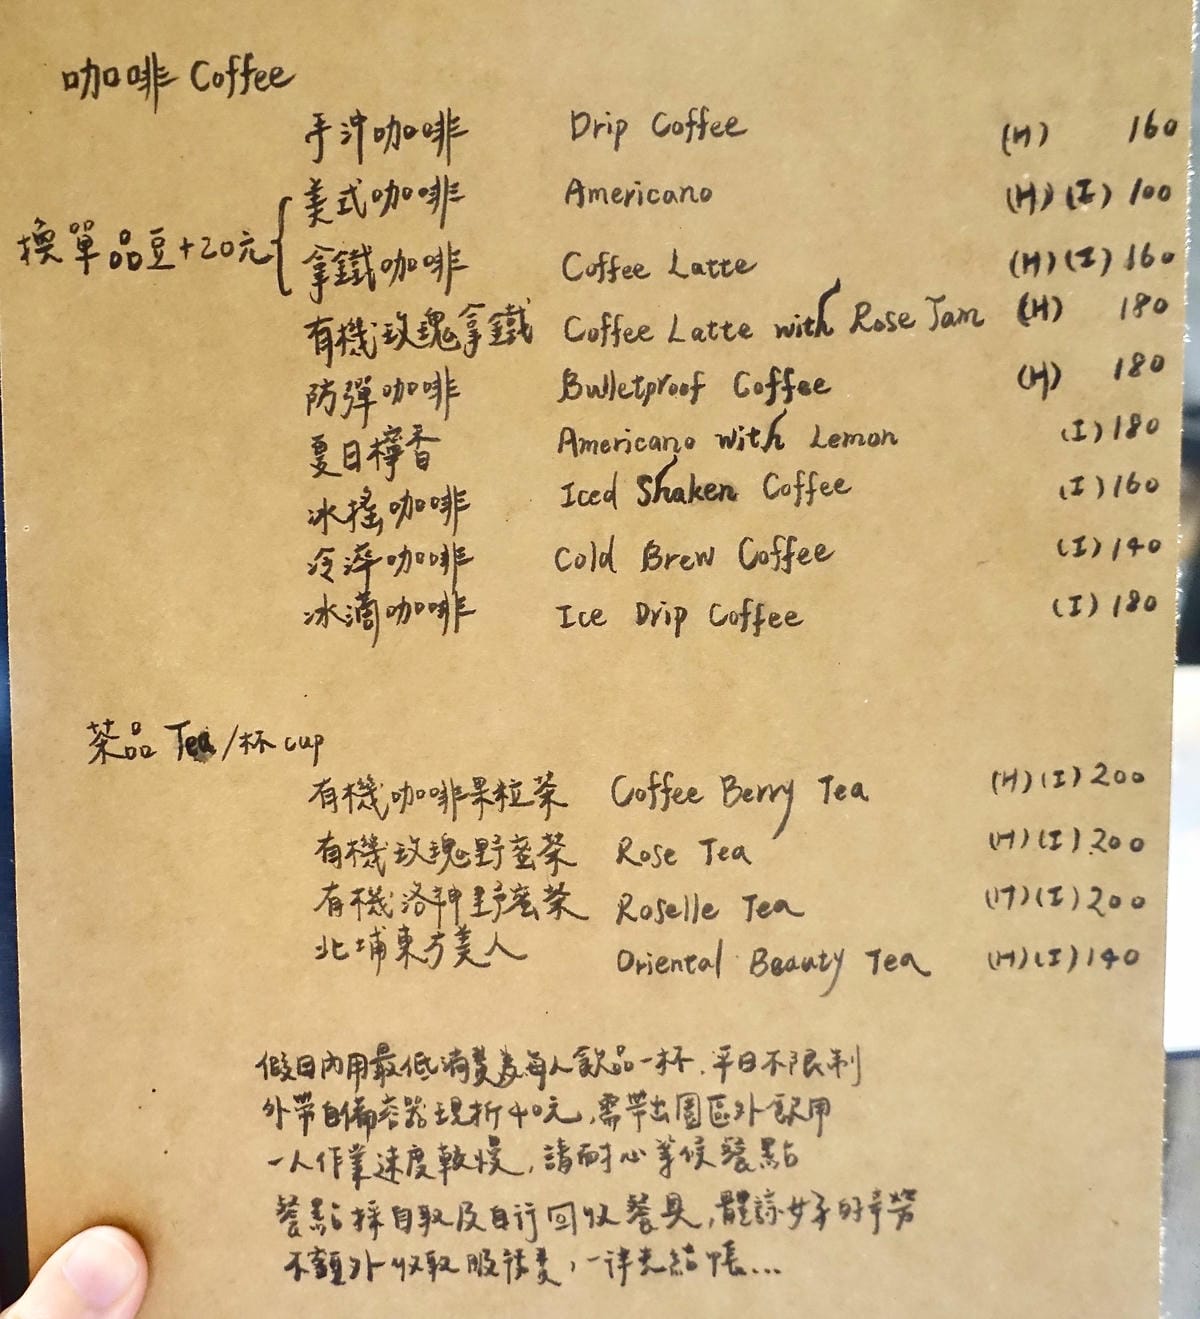 咖啡 Coffee
手沖咖啡 Drip Coffee (H) 160
美式咖啡 Americano (H)(I) 100
換單品豆+20元
拿鐵咖啡 Coffee Latte (H)(I) 160
有機玫瑰拿鐵 Coffee Latte with Rose Jam (H) 180
防彈咖啡 Bulletproof Coffee (H) 180
夏日檸香 Americano with Lemon (I) 180
冰搖咖啡 Iced Shaken Coffee (I) 160
冷淬咖啡 Cold Brew Coffee (I) 140
冰滴咖啡 Ice Drip Coffee (I) 180
茶品 Tea /杯 cup
有機咖啡果粒茶 Coffee Berry Tea (H)(I) 200
有機玫瑰野蜜茶 Rose Tea (H)(I) 200
有機洛神野蜜茶 Roselle Tea (H)(I) 200
北埔東方美人 Oriental Beauty Tea (H)(I) 140
假日內用最低消費為每人飲品一杯.平日不限制
外帶自備容器現折40元,需帶出園區外飲用
一人作業速度較慢,請耐心等候餐點
餐點採自取及自行回收餐具,體諒女子的辛勞
不額外收取服務費,一律先結帳...